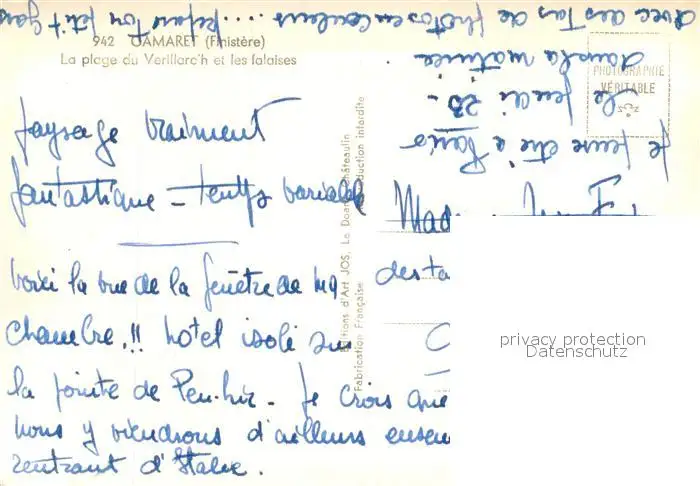 942 CAMARET (Finistère)
La plage du Verillarc'h et les falaises
paysage vraiment
fantastique - temps variable
voici la vue de la fenêtre de ma
chambre.!! hotel isolé sur
la pointe de Pen-hir - Je crois que
nous y viendrons d'ailleurs
rentrant d'Italie.
Je pense être à Paris
le jeudi 28 -
dans la matinée
avec des tas de photos en couleurs .... ton petit
Mad
des
Editions d'Art JOS. Le Doaré Châteaulin
Fabrication Française. Reproduction interdite
PHOTOGRAPHIE
VÉRITABLE
privacy protection
Datenschutz